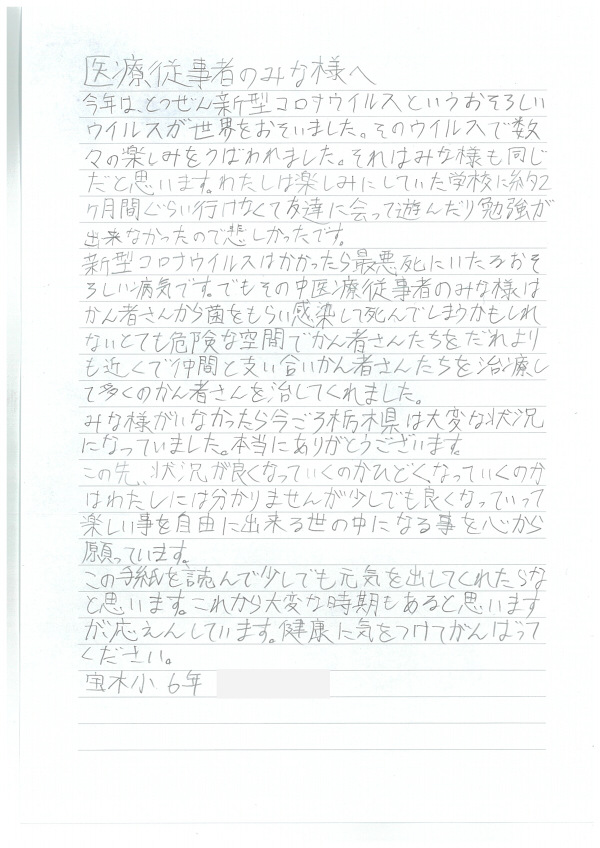 医療従事者のみな様へ
今年は、とつぜん新型コロナウイルスというおそろしい
ウイルスが世界をおそいました。そのウイルスで数
々の楽しみをうばわれました。それはみな様も同じ
だと思います。わたしは楽しみにしていた学校に約2
ヶ月間ぐらい行けなくて友達に会って遊んだり勉強が
出来なかったので悲しかったです。
新型コロナウイルスはかかったら最悪死にいたるおそ
ろしい病気です。でもその中医療従事者のみな様は
かん者さんから菌をもらい感染して死んでしまうかもしれ
ないとても危険な空間でかん者さんたちをだれより
も近くで仲間と支い合いかん者さんたちを治療し
て多くのかん者さんを治してくれました。
みな様がいなかったら今ごろ栃木県は大変な状況
になっていました。本当にありがとうございます。
この先、状況が良くなっていくのかひどくなっていくのか
はわたしには分かりませんが少しでも良くなっていって
楽しい事を自由に出来る世の中になる事を心から
願っています。
この手紙を読んで少しでも元気を出してくれたらな
と思います。これから大変な時期もあると思います
が応えんしています。健康に気をつけてがんばって
ください。
宝木小 6年